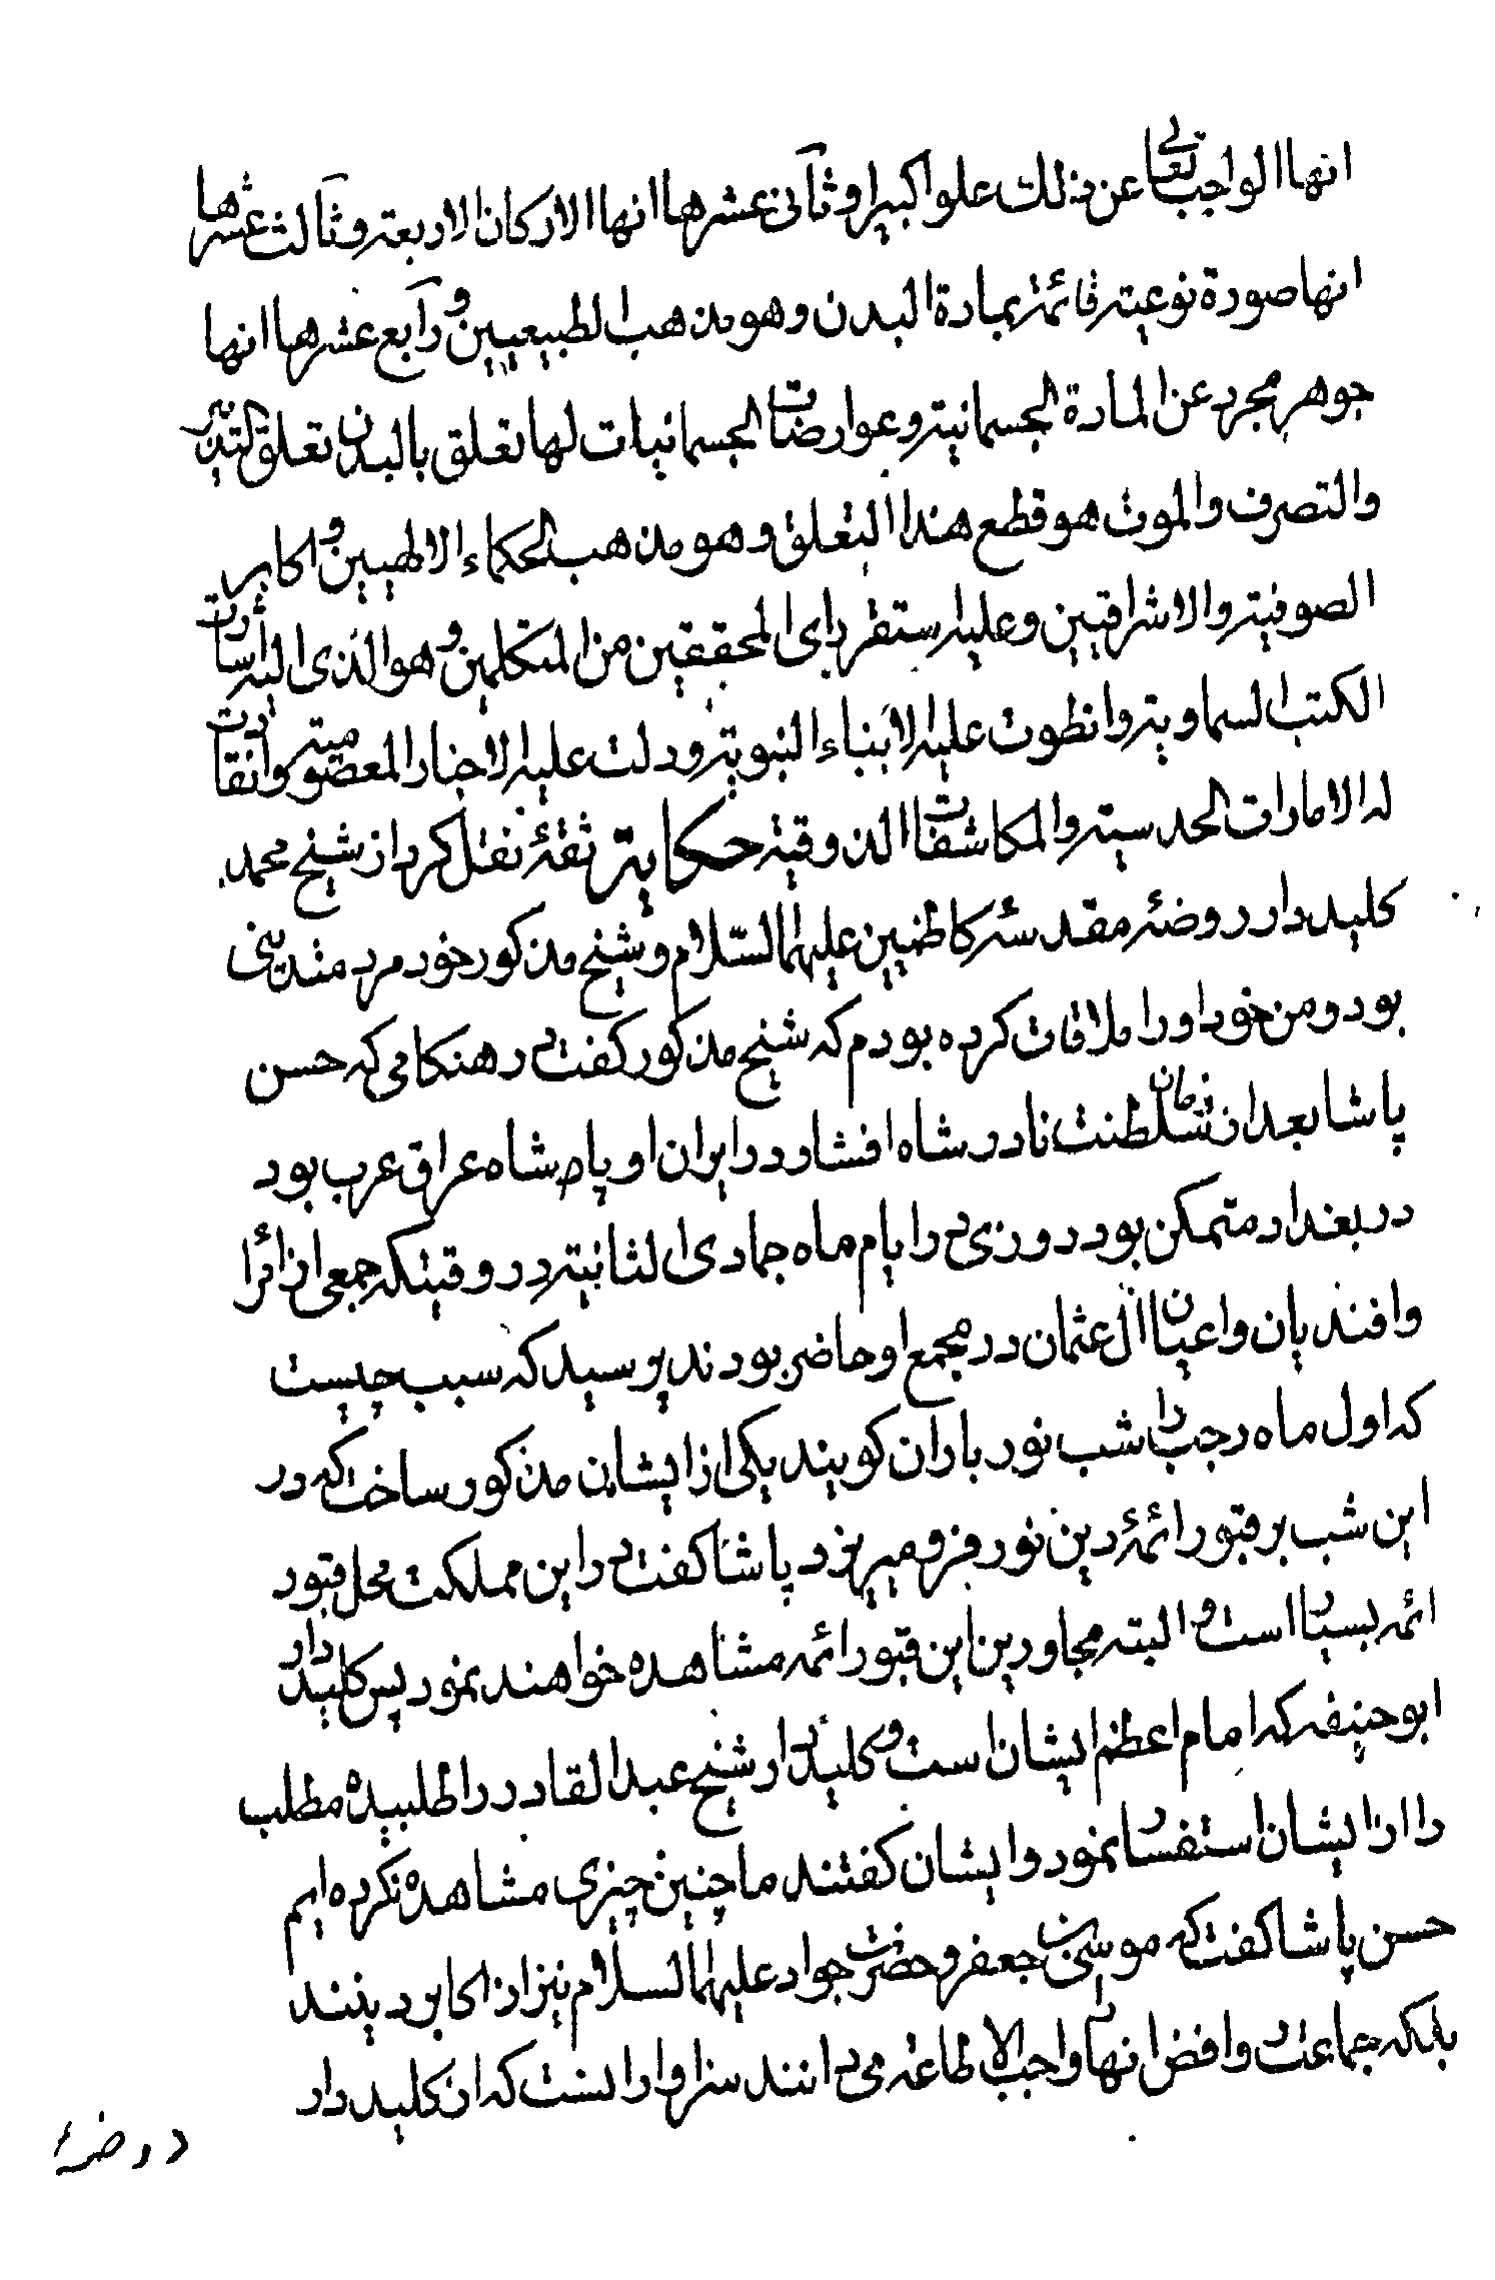 انها الواجب تعالی عن ذلك علوا كبيرا و ثآنی عشرها انها الاركان الاربعة و ثآلث عشرها
انها صورة نوعية قائمة بمادة البدن و هو مذهب الطبيعيين و رآبع عشرها انها
جوهر مجرد عن المادة الجسمانية و عوارضات الجسمانيات لها تعلق بالبدن تعلق التدبير
والتصرف والموت هو قطع هذا التعلق و هو مذهب الحكماء الالهيين و اكابر
الصوفية والاشراقيين و عليه استقر رای المحققين من المتكلمين و هو الذی اليه اشارت
الكتب السماوية و انطوت عليه الانباء النبوية و دلت عليه الاخبار المعصومية و انقادت
له الامارات الحدسية والمكاشفات الذوقية حكاية ثقۀ نقل كرد از شيخ محمد
كليددار روضۀ مقدسۀ كاظمين عليهما السّلام و شيخ مذكور خود مرد متدينی
بود و من خود او را ملاقات كرده بودم كه شيخ مذكور كفت در هنكامی كه حسن
پاشا بعد از زمان سلطنت نادر شاه افشار در ايران او پادشاه عراق عرب بود
در بغداد متمكن بود روزی در ايام ماه جمادی الثانية در وقتيكه جمعی از اٸرا
وافنديان و اعيان ال عثمان در مجمع او حاضر بودند پرسيد كه سبب چيست
كه اول ماه رجب را شب نور باران كويند يكی از ايشان مذكور ساخت كه در
اين شب بر قبور ائمۀ دين نور فرو ميريزد پاشا كفت در اين مملكت محل قبور
ائمه بسيار است و البته مجاورين اين قبور ائمه مشاهده خواهند نمود پس كليددار
ابو حنيفه كه امام اعظم ايشان است و كليددار شيخ عبد القادر را طلبيده مطلب
را از ايشان استفسار نمود و ايشان كفتند ما چنين چيزی مشاهده نكرده ايم
حسن پاشا كفت كه موسی بن جعفر و حضرت جواد عليهما السلام نيز از اكابر دينند
بلكه جماعت روافض انها را واجب الاطاعه می دانند سزاوار انست كه از كليددار
روضۀ